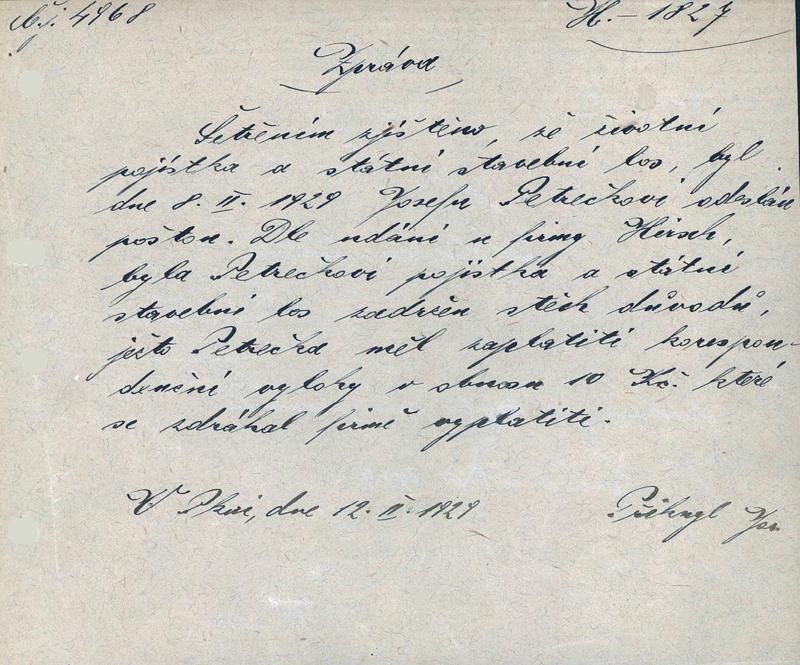 Čj. 4968 H. - 1827
Zpráva
Šetřením zjištěno, že životní
pojistka a státní stavební los, byl
dne 8. II. 1929 Josefu Petrečkovi odeslán
poštou. Dle udání u firmy Hirsch,
byla Petrečkovi pojistka a státní
stavební los zadržen stěch důvodů,
ješto Petrečka měl zaplatiti korespon-
denční vylohy v obnosu 10 Kč. které
se zdráhal firmě vyplatiti.
V Plzni, dne 12. II. 1929 Přihnyl